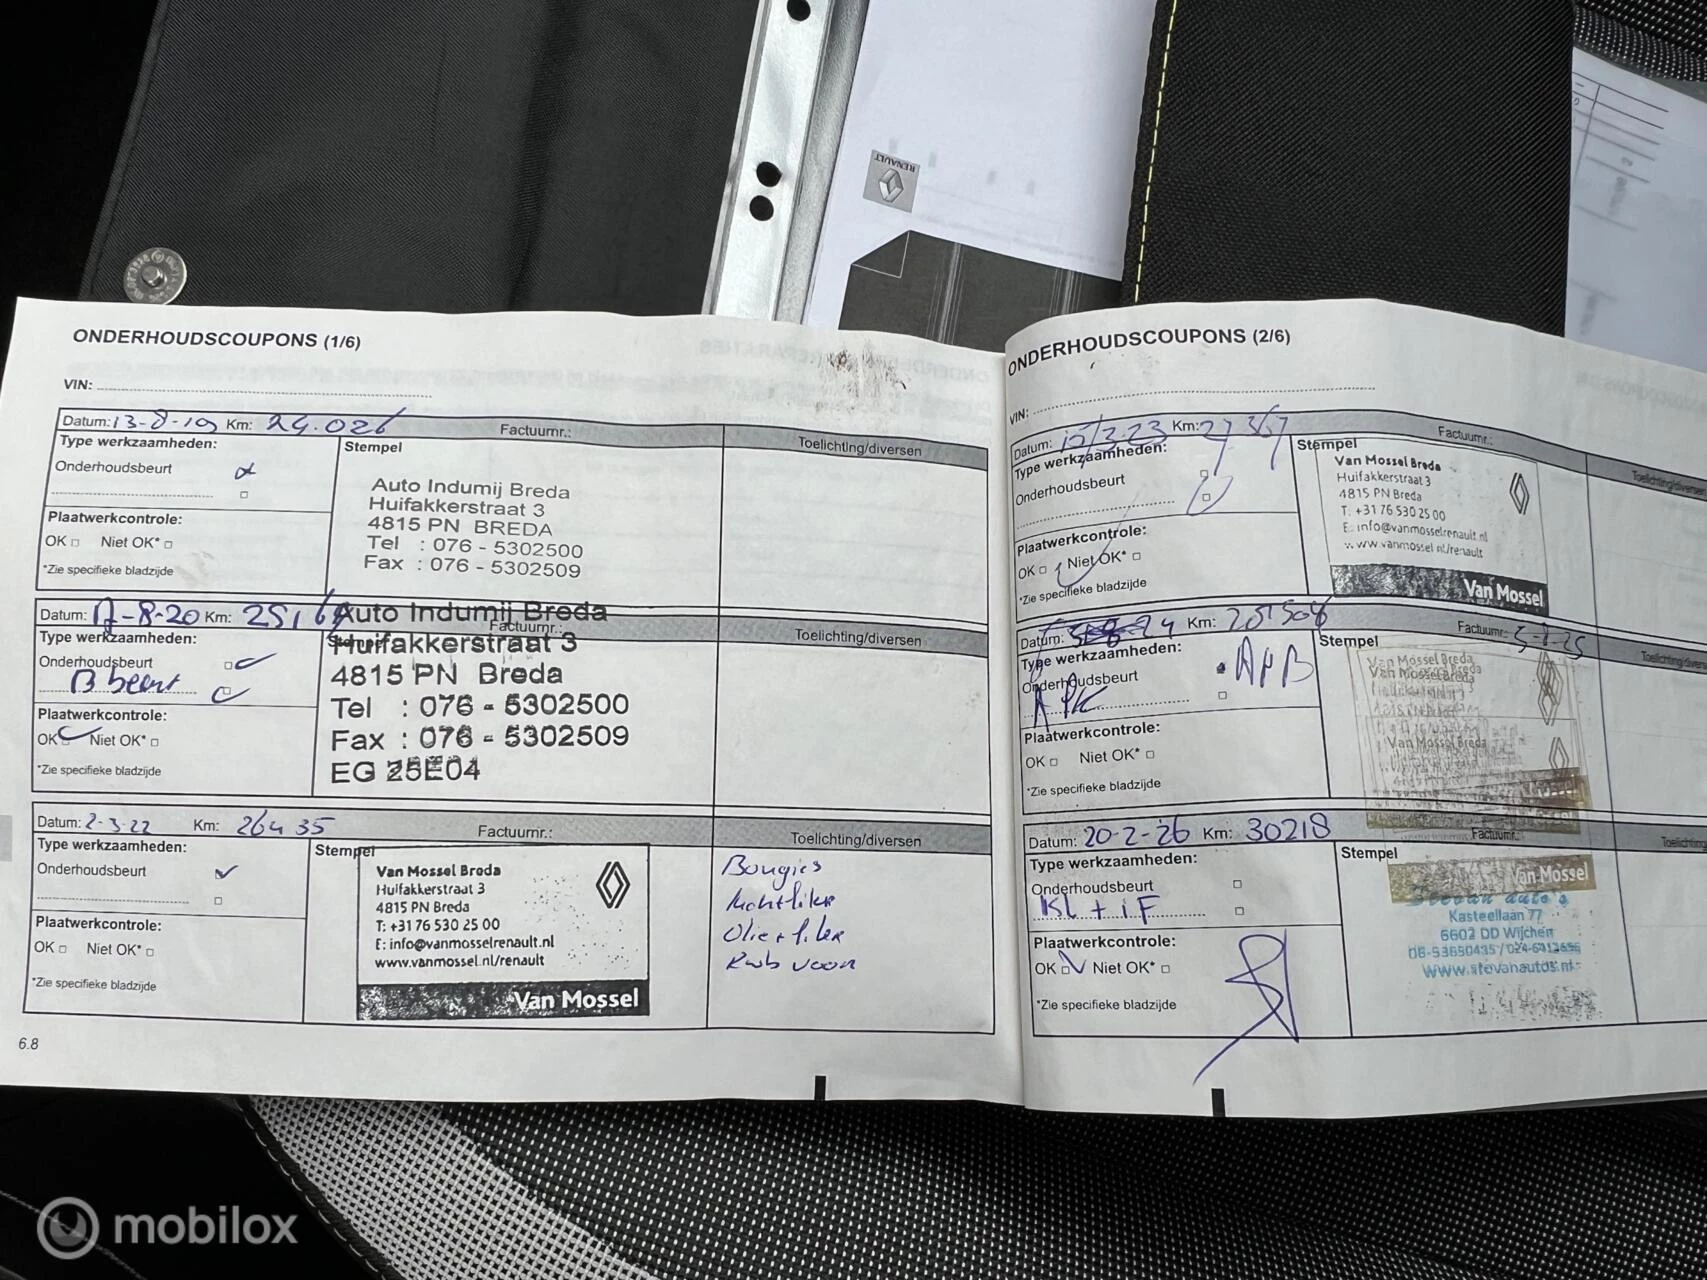 RENAULT
ONDERHOUDSCOUPONS (1/6)
VIN:
Datum: 13-8-19 Km: 24.026 Factuurnr.:
Type werkzaamheden: Stempel Toelichting/diversen
Onderhoudsbeurt
Plaatwerkcontrole:
OK Niet OK*
*Zie specifieke bladzijde
Auto Indumij Breda
Huifakkerstraat 3
4815 PN BREDA
Tel : 076 - 5302500
Fax : 076 - 5302509
Datum: 17-8-20 Km: Factuurnr.:
Type werkzaamheden: Toelichting/diversen
Onderhoudsbeurt
B beurt
Plaatwerkcontrole:
OK Niet OK*
*Zie specifieke bladzijde
Auto Indumij Breda
Huifakkerstraat 3
4815 PN Breda
Tel : 076 - 5302500
Fax : 076 - 5302509
EG 25E04
Datum: 2-3-22 Km: 26435 Factuurnr.:
Type werkzaamheden: Stempel Toelichting/diversen
Onderhoudsbeurt
Plaatwerkcontrole:
OK Niet OK*
*Zie specifieke bladzijde
Van Mossel Breda
Huifakkerstraat 3
4815 PN Breda
T: +31 76 530 25 00
E: info@vanmosselrenault.nl
www.vanmossel.nl/renault
Van Mossel
Bougies
Olie + filter
voor
6.8
ONDERHOUDSCOUPONS (2/6)
VIN:
Datum: 15/3-23 Km: 27367 Factuurnr.:
Type werkzaamheden: Stempel Toelichting/diversen
Onderhoudsbeurt
Plaatwerkcontrole:
OK Niet OK*
*Zie specifieke bladzijde
Van Mossel Breda
Huifakkerstraat 3
4815 PN Breda
T: +31 76 530 25 00
E: info@vanmosselrenault.nl
www.vanmossel.nl/renault
Van Mossel
Datum: Km: Factuurnr.:
Type werkzaamheden: Stempel
Onderhoudsbeurt
APK
Plaatwerkcontrole:
OK Niet OK*
*Zie specifieke bladzijde
Van Mossel Breda
Van Mossel Breda
Van Mossel Breda
Datum: 20-2-26 Km: 30218 Factuurnr.:
Type werkzaamheden: Stempel
Onderhoudsbeurt
KL + iF
Plaatwerkcontrole:
OK Niet OK*
*Zie specifieke bladzijde
Van Mossel
Stevan auto's
Kasteellaan 77
6602 DD Wijchen
www.stevanautos.nl
mobilox